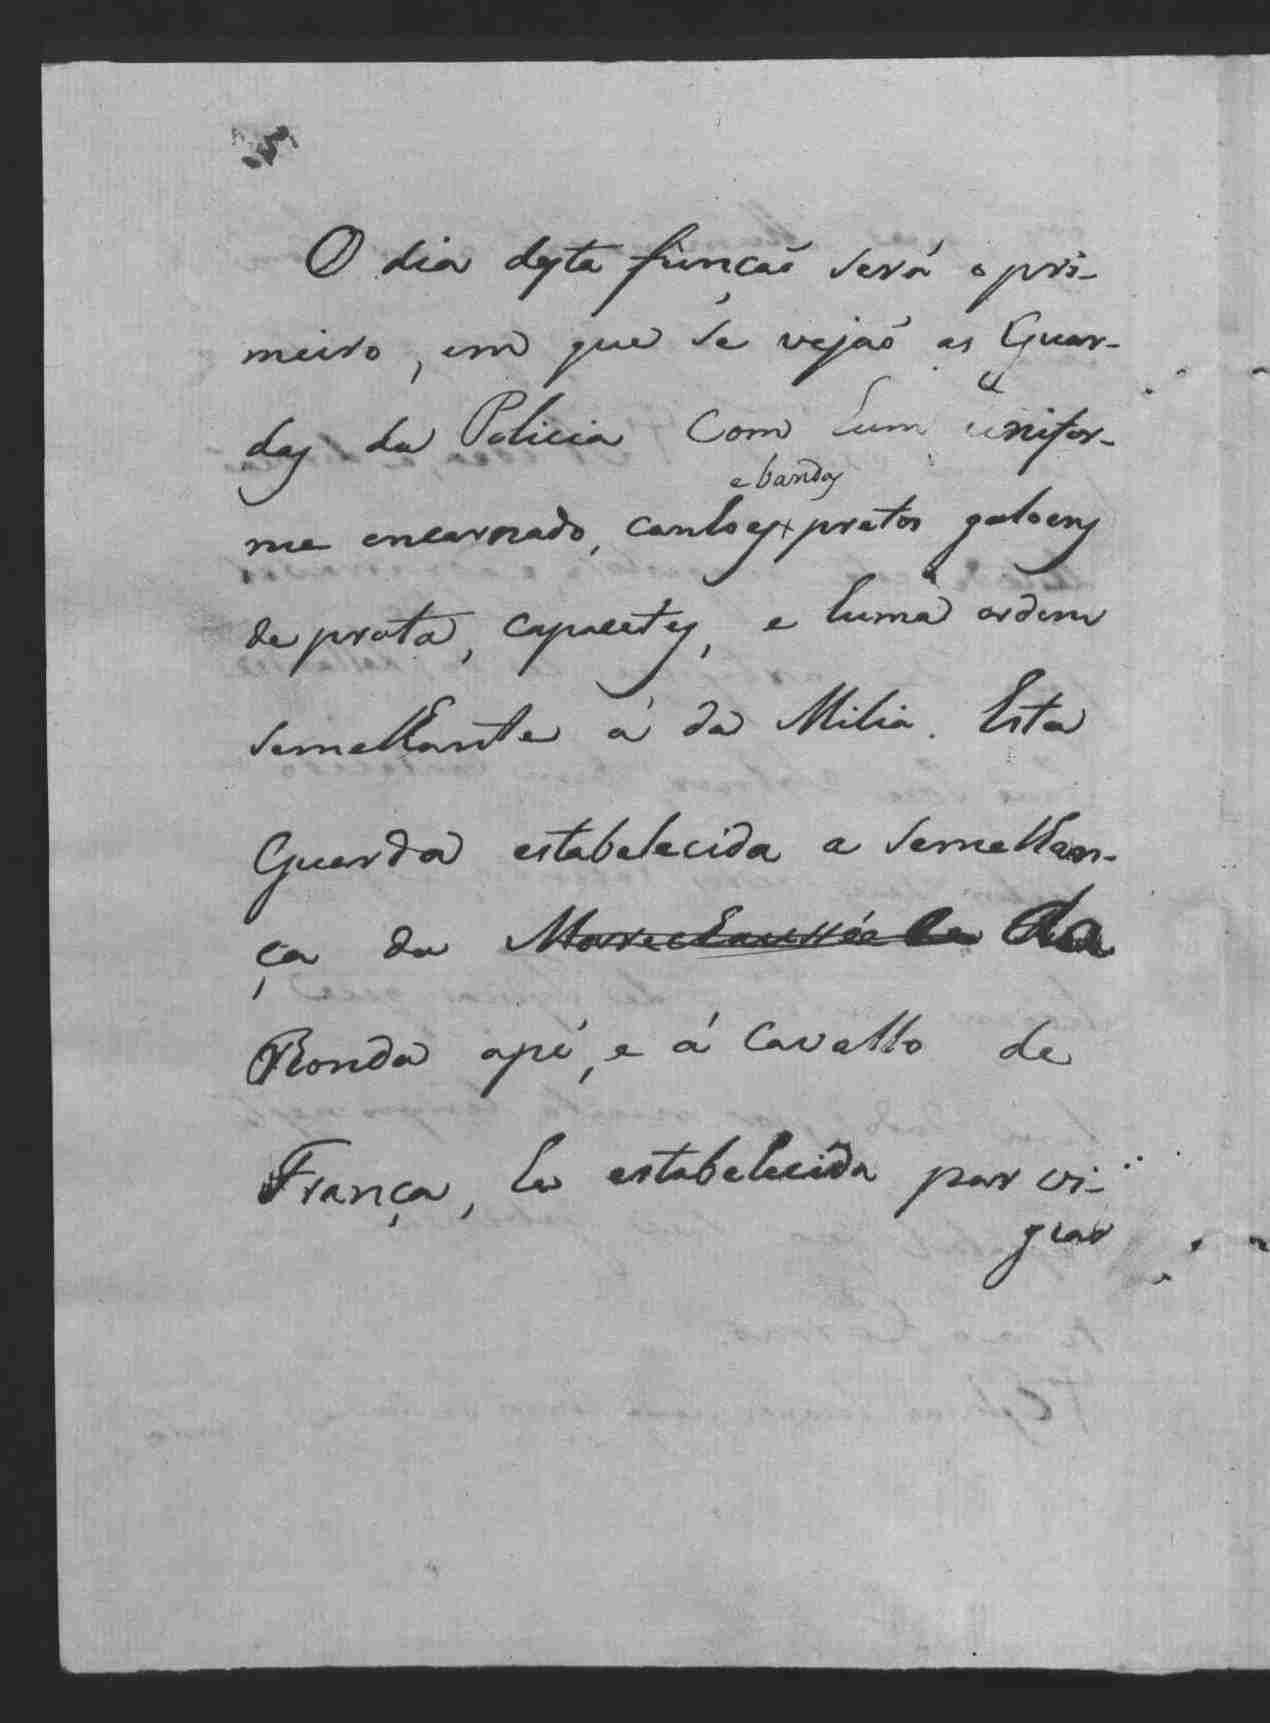 O dia desta funcaõ será o pri-
meiro, em que se vejaõ as Guar-
das da Policia Com hum unifor-
e bandas
me encarnado, canhoes+pretos galoens
de prata, capacetes, e huma ordem
semelhante á da Milia. Esta
Guarda estabelecida a semelhan-
ça da Marechaussée da
Ronda apé, e á Cavallo de
França, he estabelecida par vi-
giar